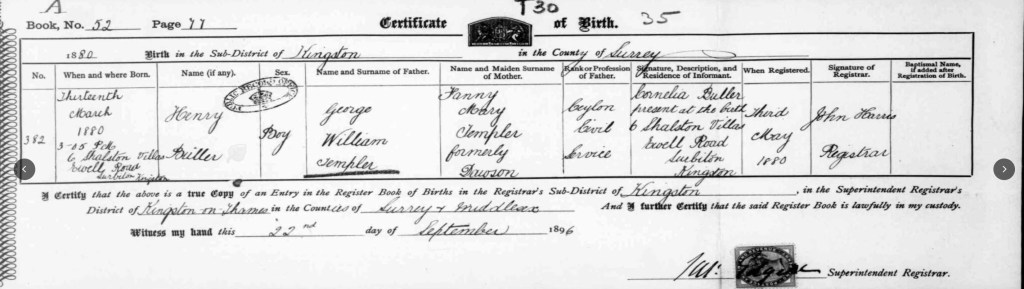 A
T30
35
Book, No. 52 Page 77 Certificate of Birth.
1880 Birth in the Sub-District of Kingston in the County of Surrey
No. When and where Born. Name (if any). Sex. Name and Surname of Father. Name and Maiden Surname of Mother. Rank or Profession of Father. Signature, Description, and Residence of Informant. When Registered. Signature of Registrar. Baptismal Name, if added after Registration of Birth.
382
Thirteenth
March
1880
6 Shalston Villas
Ewell Road
Surbiton Kingston
Henry
Butler
Boy
George
William
Templer
Fanny
Mary
Templer
formerly
Dawson
Ceylon
Civil
Service
Cornelia Butler
present at the birth
6 Shalston Villas
Ewell Road
Surbiton
Kingston
Third
May
1880
John Harris
Registrar
I Certify that the above is a true Copy of an Entry in the Register Book of Births in the Registrar's Sub-District of Kingston, in the Superintendent Registrar's
District of Kingston on Thames in the Counties of Surrey & Middlesex And I further Certify that the said Register Book is lawfully in my custody.
Witness my hand this 22nd day of September 1896
Superintendent Registrar.